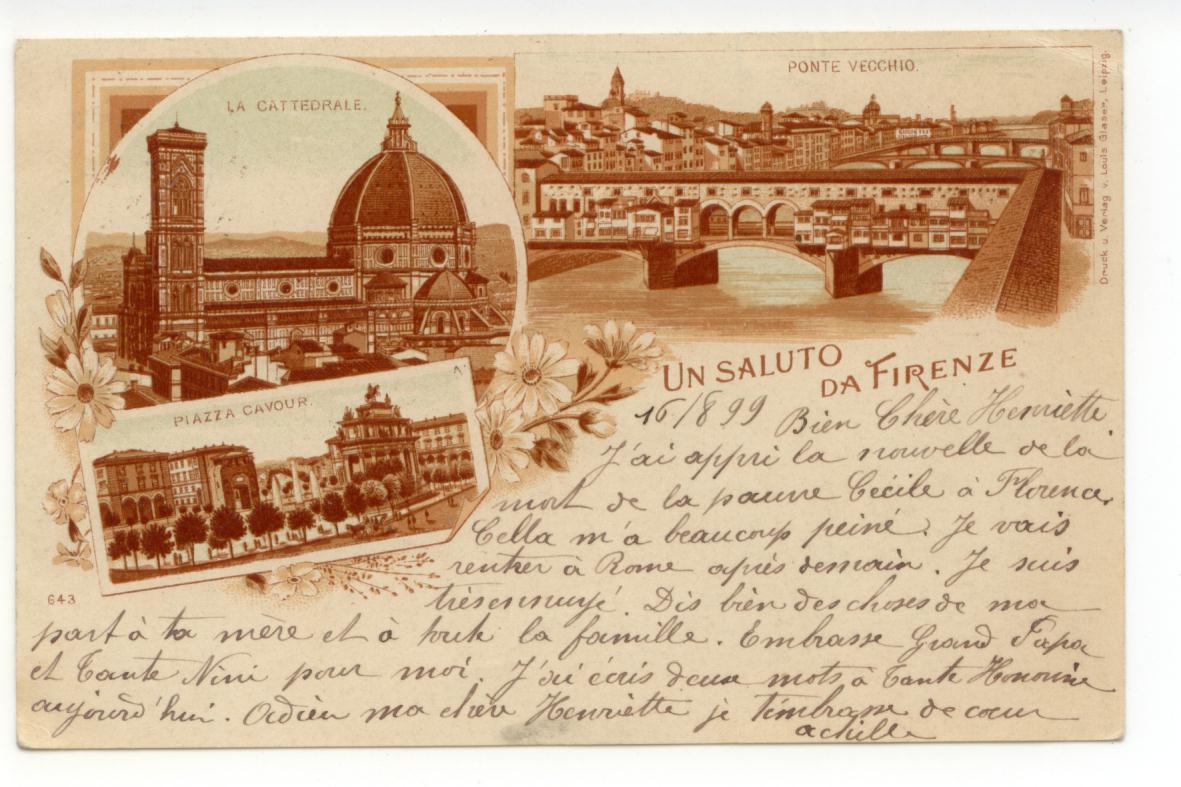 LA CATTEDRALE.
PONTE VECCHIO.
Druck u. Verlag v. Louis Glaser, Leipzig.
PIAZZA CAVOUR.
643
UN SALUTO
DA FIRENZE
16/8 99 Bien Chère Henriette
J'ai appri la nouvelle de la
mort de la pauvre Cécile à Florence.
Cella m'a beaucoup peiné. Je vais
rentrer à Rome après demain. Je suis
très ennuyé. Dis bien des choses de ma
part à ta mère et à toute la famille. Embrasse Grand Papa
et Tante Nini pour moi. J'ai écris deux mots à Tante Honorine
aujourd'hui. Adieu ma chère Henriette je t'embrasse de coeur
achille